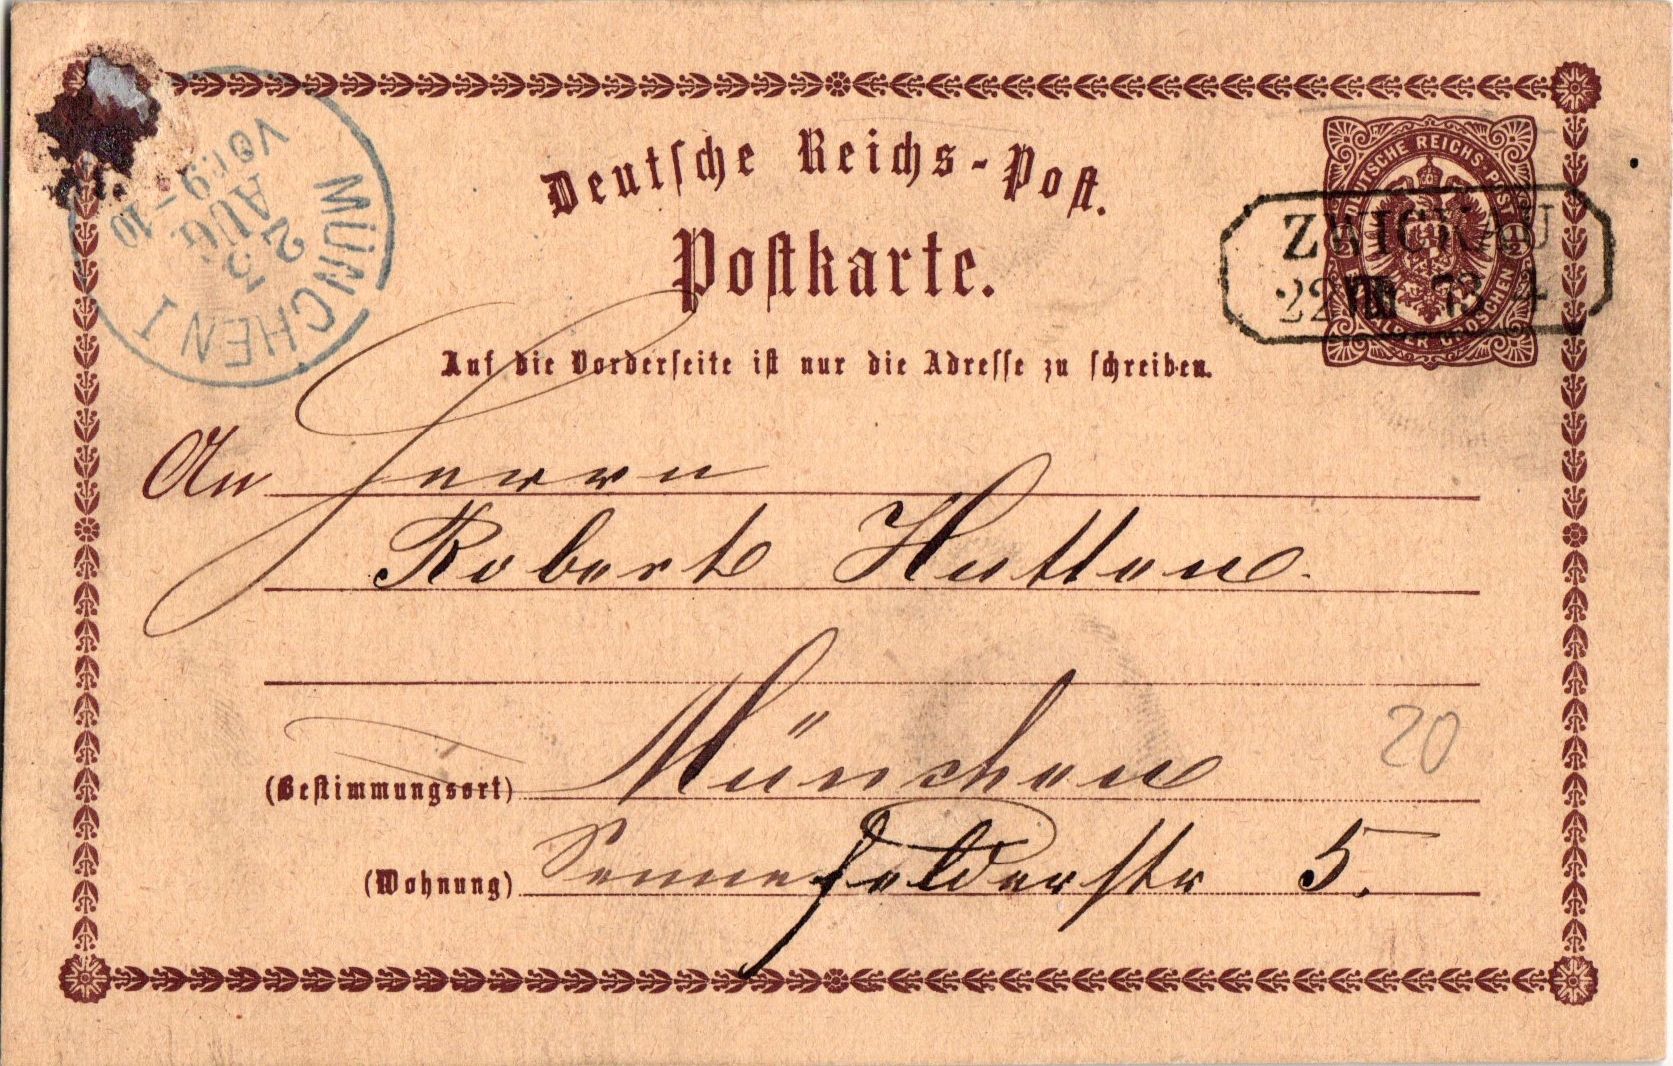 Deutsche Reichs-Post.
Postkarte.
Auf die Vorderseite ist nur die Adresse zu schreiben.
MÜNCHEN I
23
AUG.
Vor.9-10
DEUTSCHE REICHS-POST
GROSCHEN
ZWICKAU
22 VIII 73 4
An Herrn
Robert Hutten.
(Bestimmungsort) München
20
(Wohnung) Sennefelderstr 5.